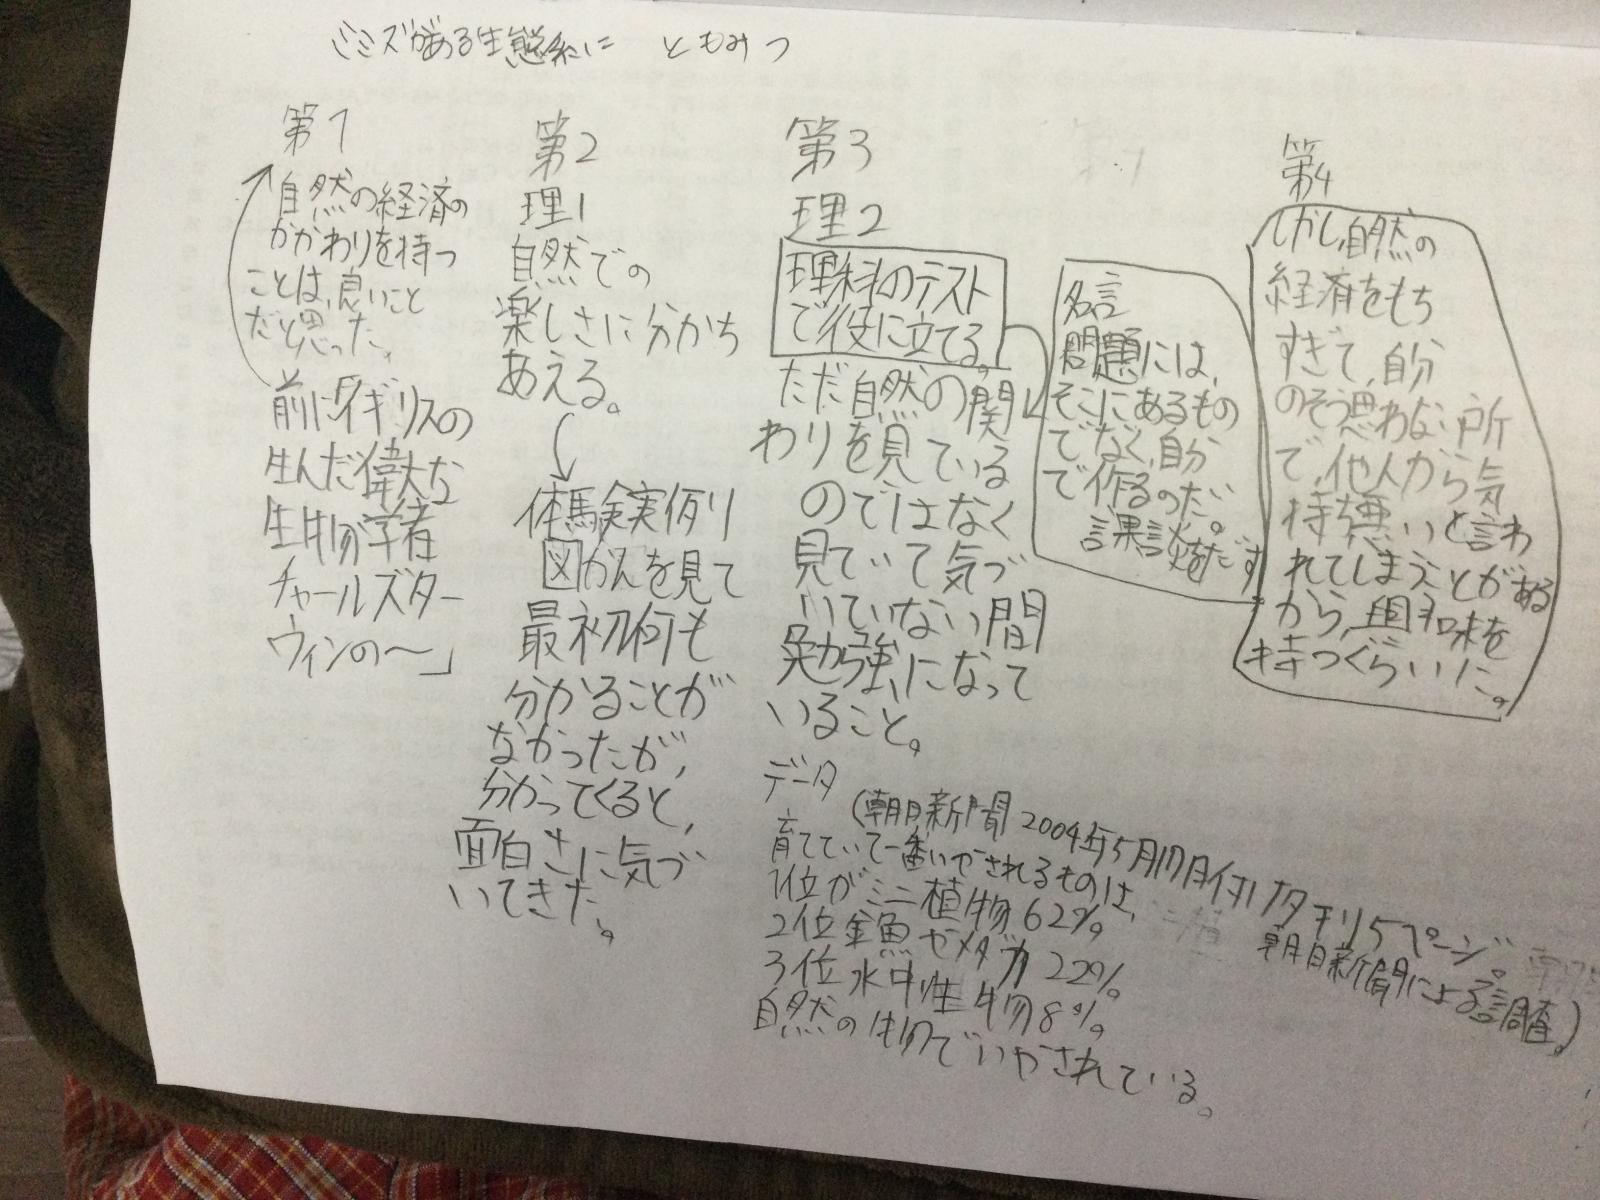 ミミズがある生態系に ともみつ
第1
自然の経済の
かかわりを持つ
ことは、良いこと
だと思った。
前に「イギリスの
生んだ偉大な
生物学者
チャールズダー
ウィンの〜」
第2
理1
自然での
楽しさに分かち
あえる。
体験実例り
図かんを見て
最初何も
分かることが
なかったが、
分かってくると、
面白さに気づ
いてきた。
第3
理2
理科のテスト
で役に立てる。
ただ自然の関
わりを見ている
のではなく
見ていて気づ
いていない間
勉強になって
いること。
名言
問題には、
そこにあるもの
でなく、自分
で作るのだ。
第4
しかし、自然の
経済をもち
すぎて、自分
のそう思わない所
で、他人から気
持ち悪いと言わ
れてしまうことがある
から、興味を
持つぐらいに。
データ
(朝日新聞 2004年5月17日付け夕刊5ページ。
朝日新聞による調査。)
育てていて一番いやされるものは、
1位がミニ植物62%。
2位金魚やメダカ22%。
3位水中生物8%。
自然の物でいやされている。